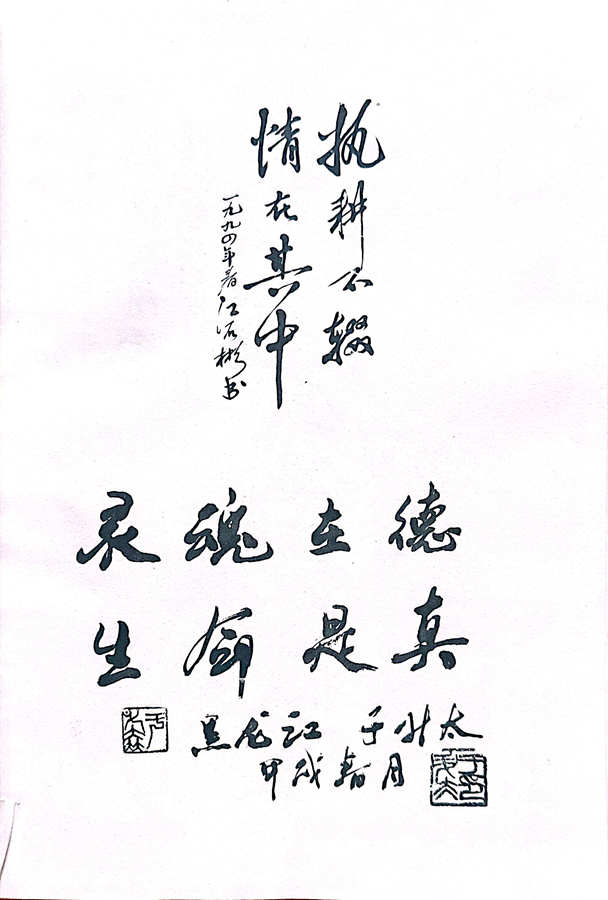 执耕不辍
情在其中
一九九四年春江沿彬书
灵魂在德
生命是真
黑龙江 于兴太
甲戌春月